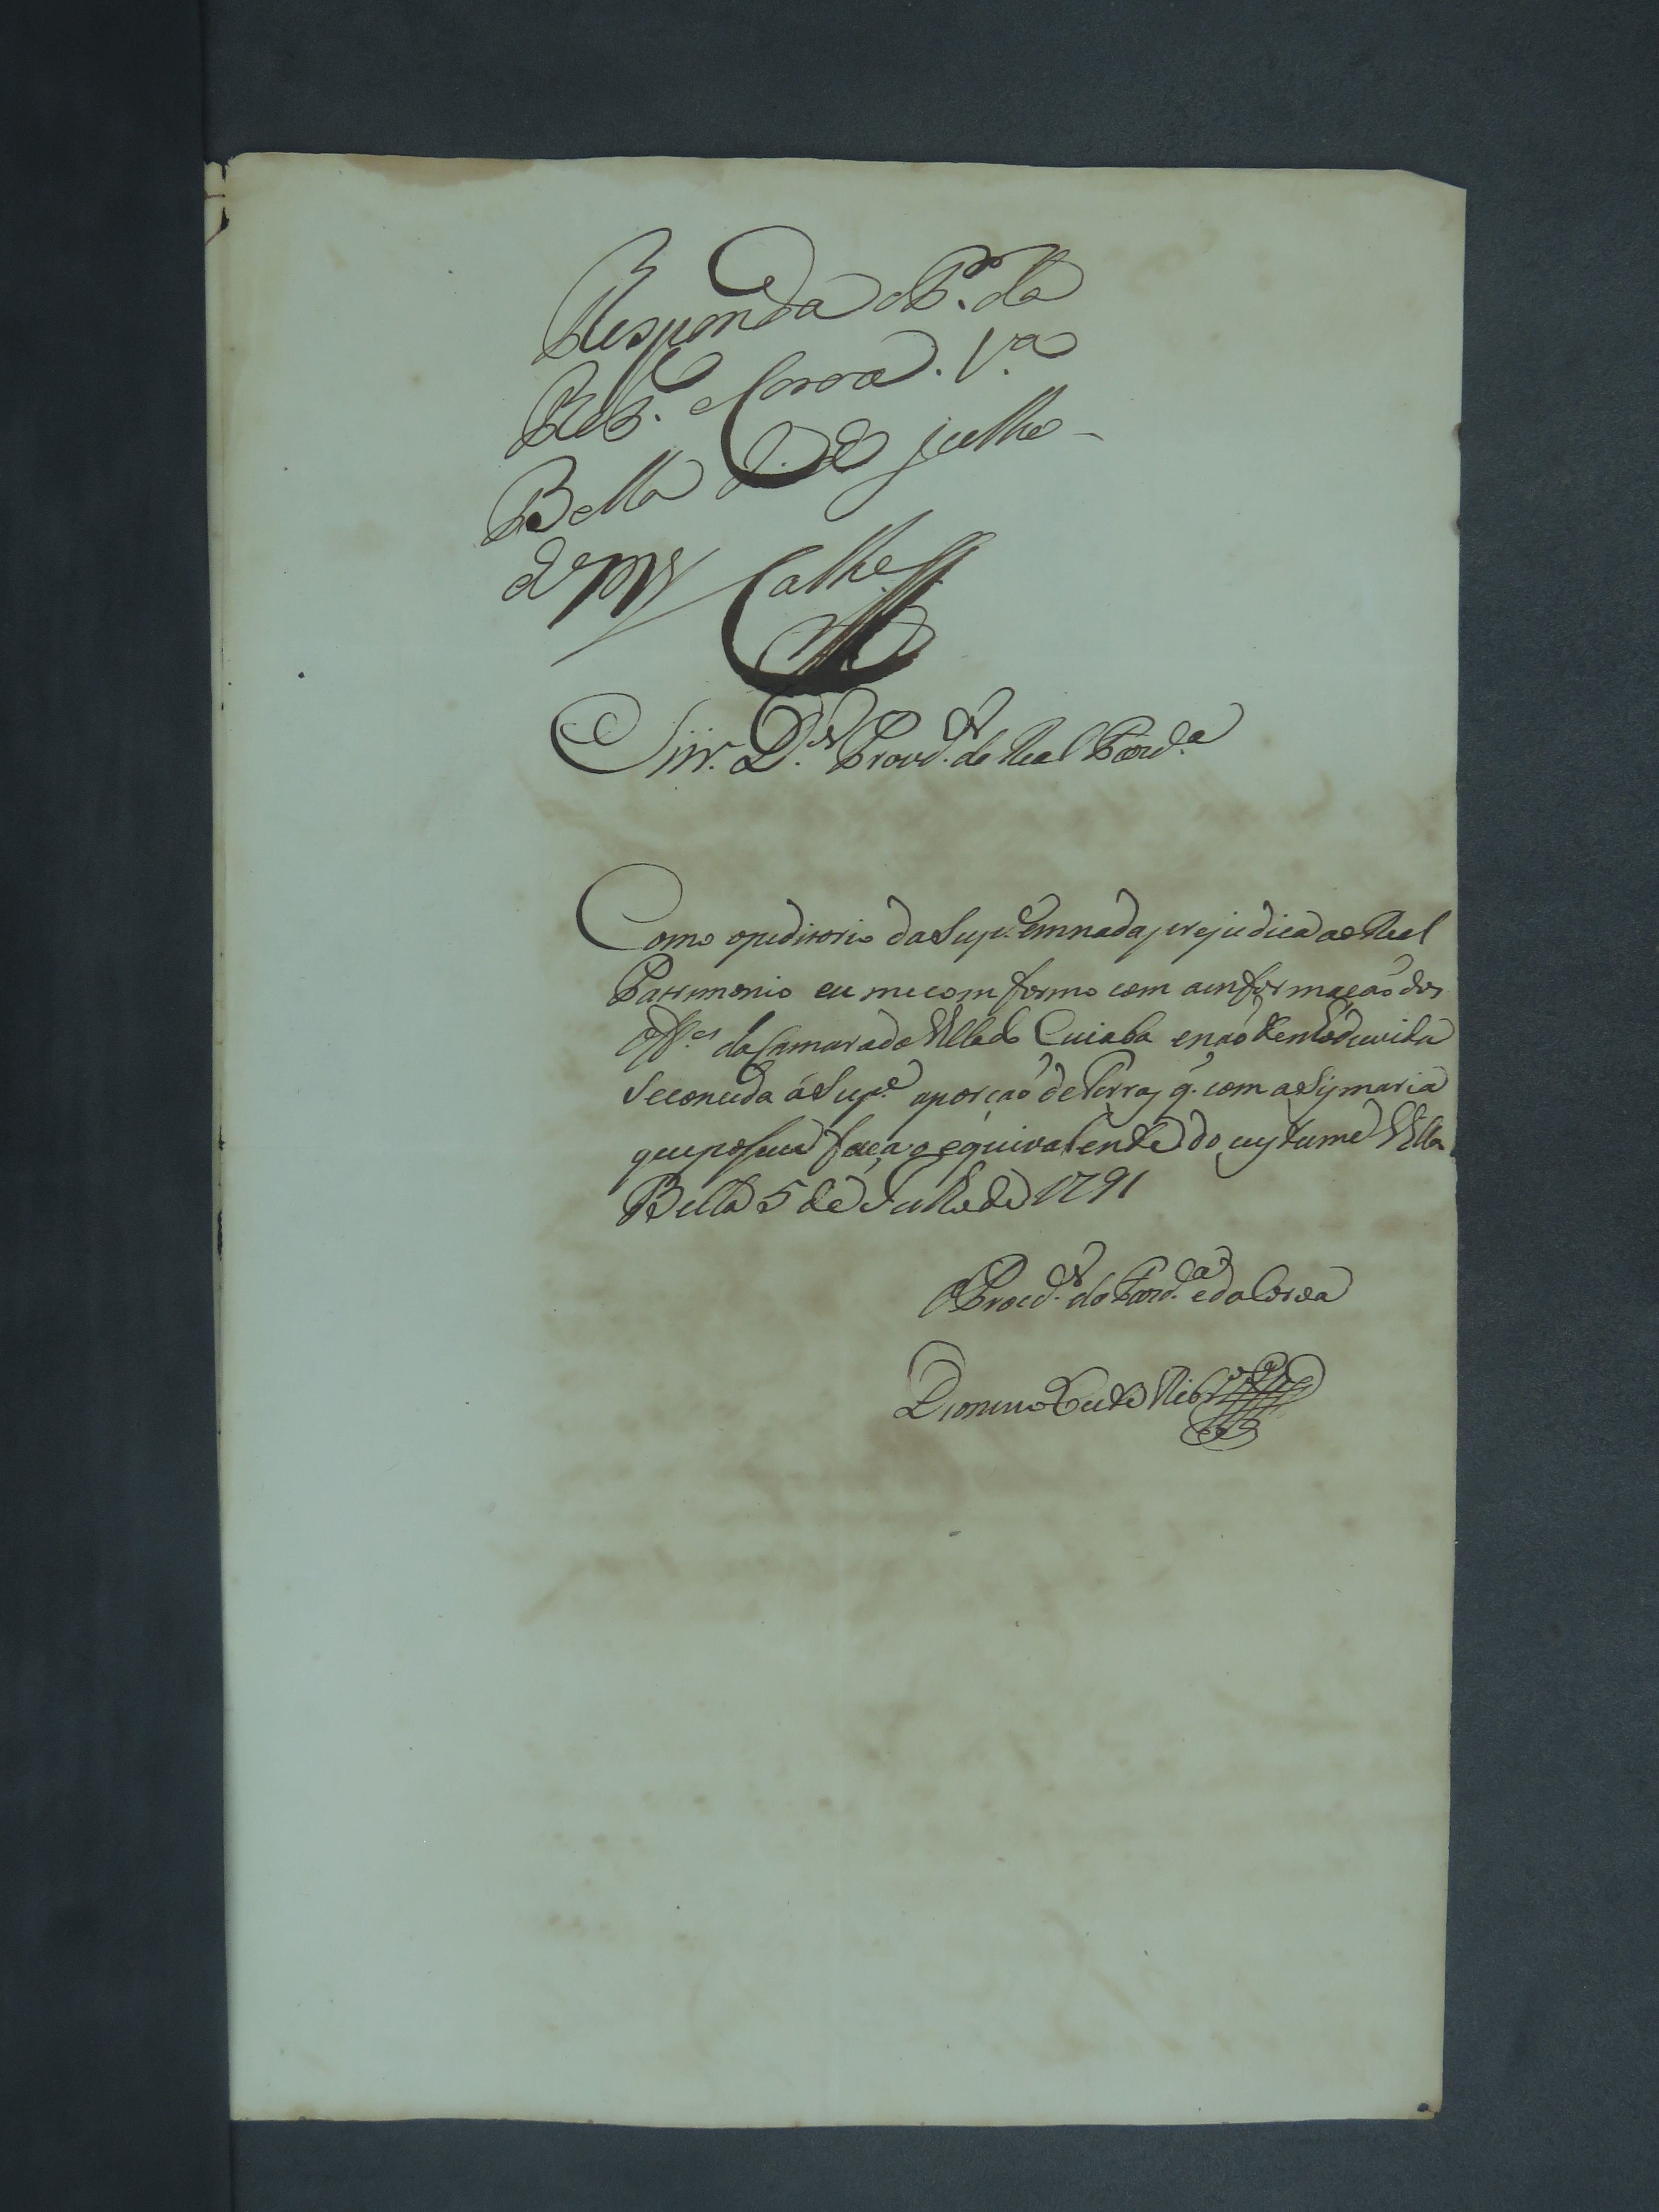 Responda o P.or da
R. F. e Coroa. V.a
Bella de julho
de 1791
Snr. D.or Provd.or da Real Fazd.a
Como opeditorio da Sup.e emnada prejudica ao Real
Patrimonio eu mecomformo com ainformação dos
Off.es da Camara da Villa do Cuiaba enaõ tenho duvida
Seconceda áSup.e aporçaõ de Terras q. com a Sismaria
quepossue faça o equivalente do custume Villa
Bella 5 de Julho de 1791
O Procd.or da Fazd.a e da Coroa